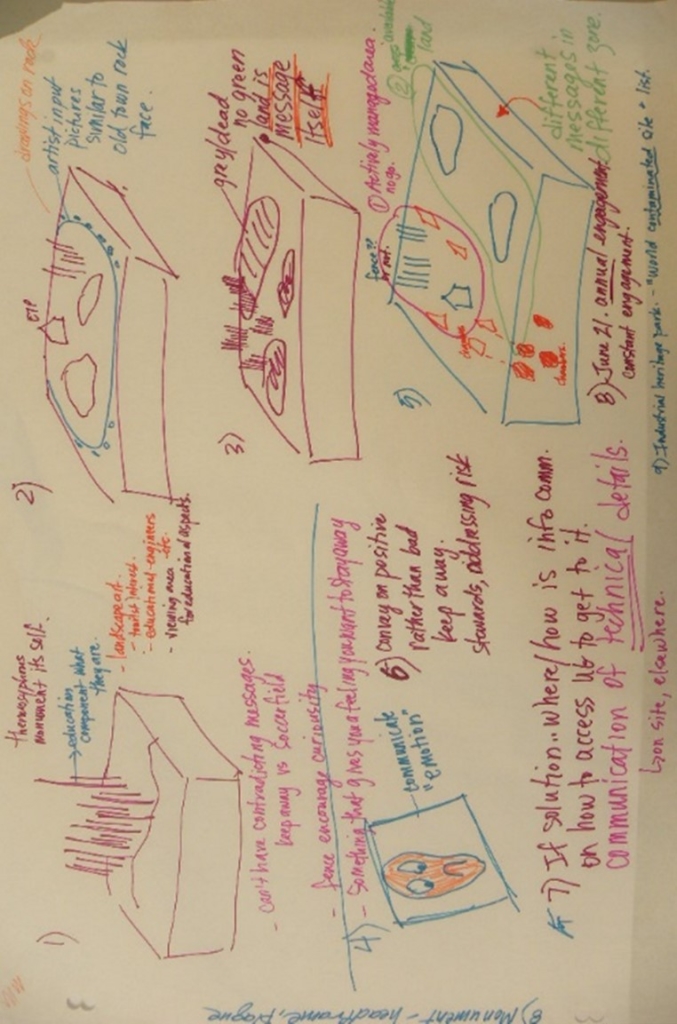 1)
thermosyphons
monument its self.
→ education
component what
they are.
- landscape art.
- tourist interest.
- educational - engineers
etc.
- viewing area
for educational aspects.
- can't have contradicting messages.
keep away vs soccerfield
- fence encourage curiousity
2)
ETP
drawings on rock
artist input
pictures
similar to
old town rock
face.
3)
gray/dead
no green
land is
message
itself
4) - Something that gives you a feeling you want to stay away
communicate
"emotion"
5)
① Actively managed area.
no go.
fence??
or not.
②
land
different
messages in
different zone.
chambers.
6) Convey on positive
rather than bad
keep away.
stewards, addressing risk
7) If solution.. where/how is info comm.
on how to access US to get to it.
communication of technical details.
↳ on site, elsewhere.
8) June 21. annual engagement
constant engagement.
9) Industrial heritage park. - "World contaminated site" list.
8) Monument - headframe, plaque